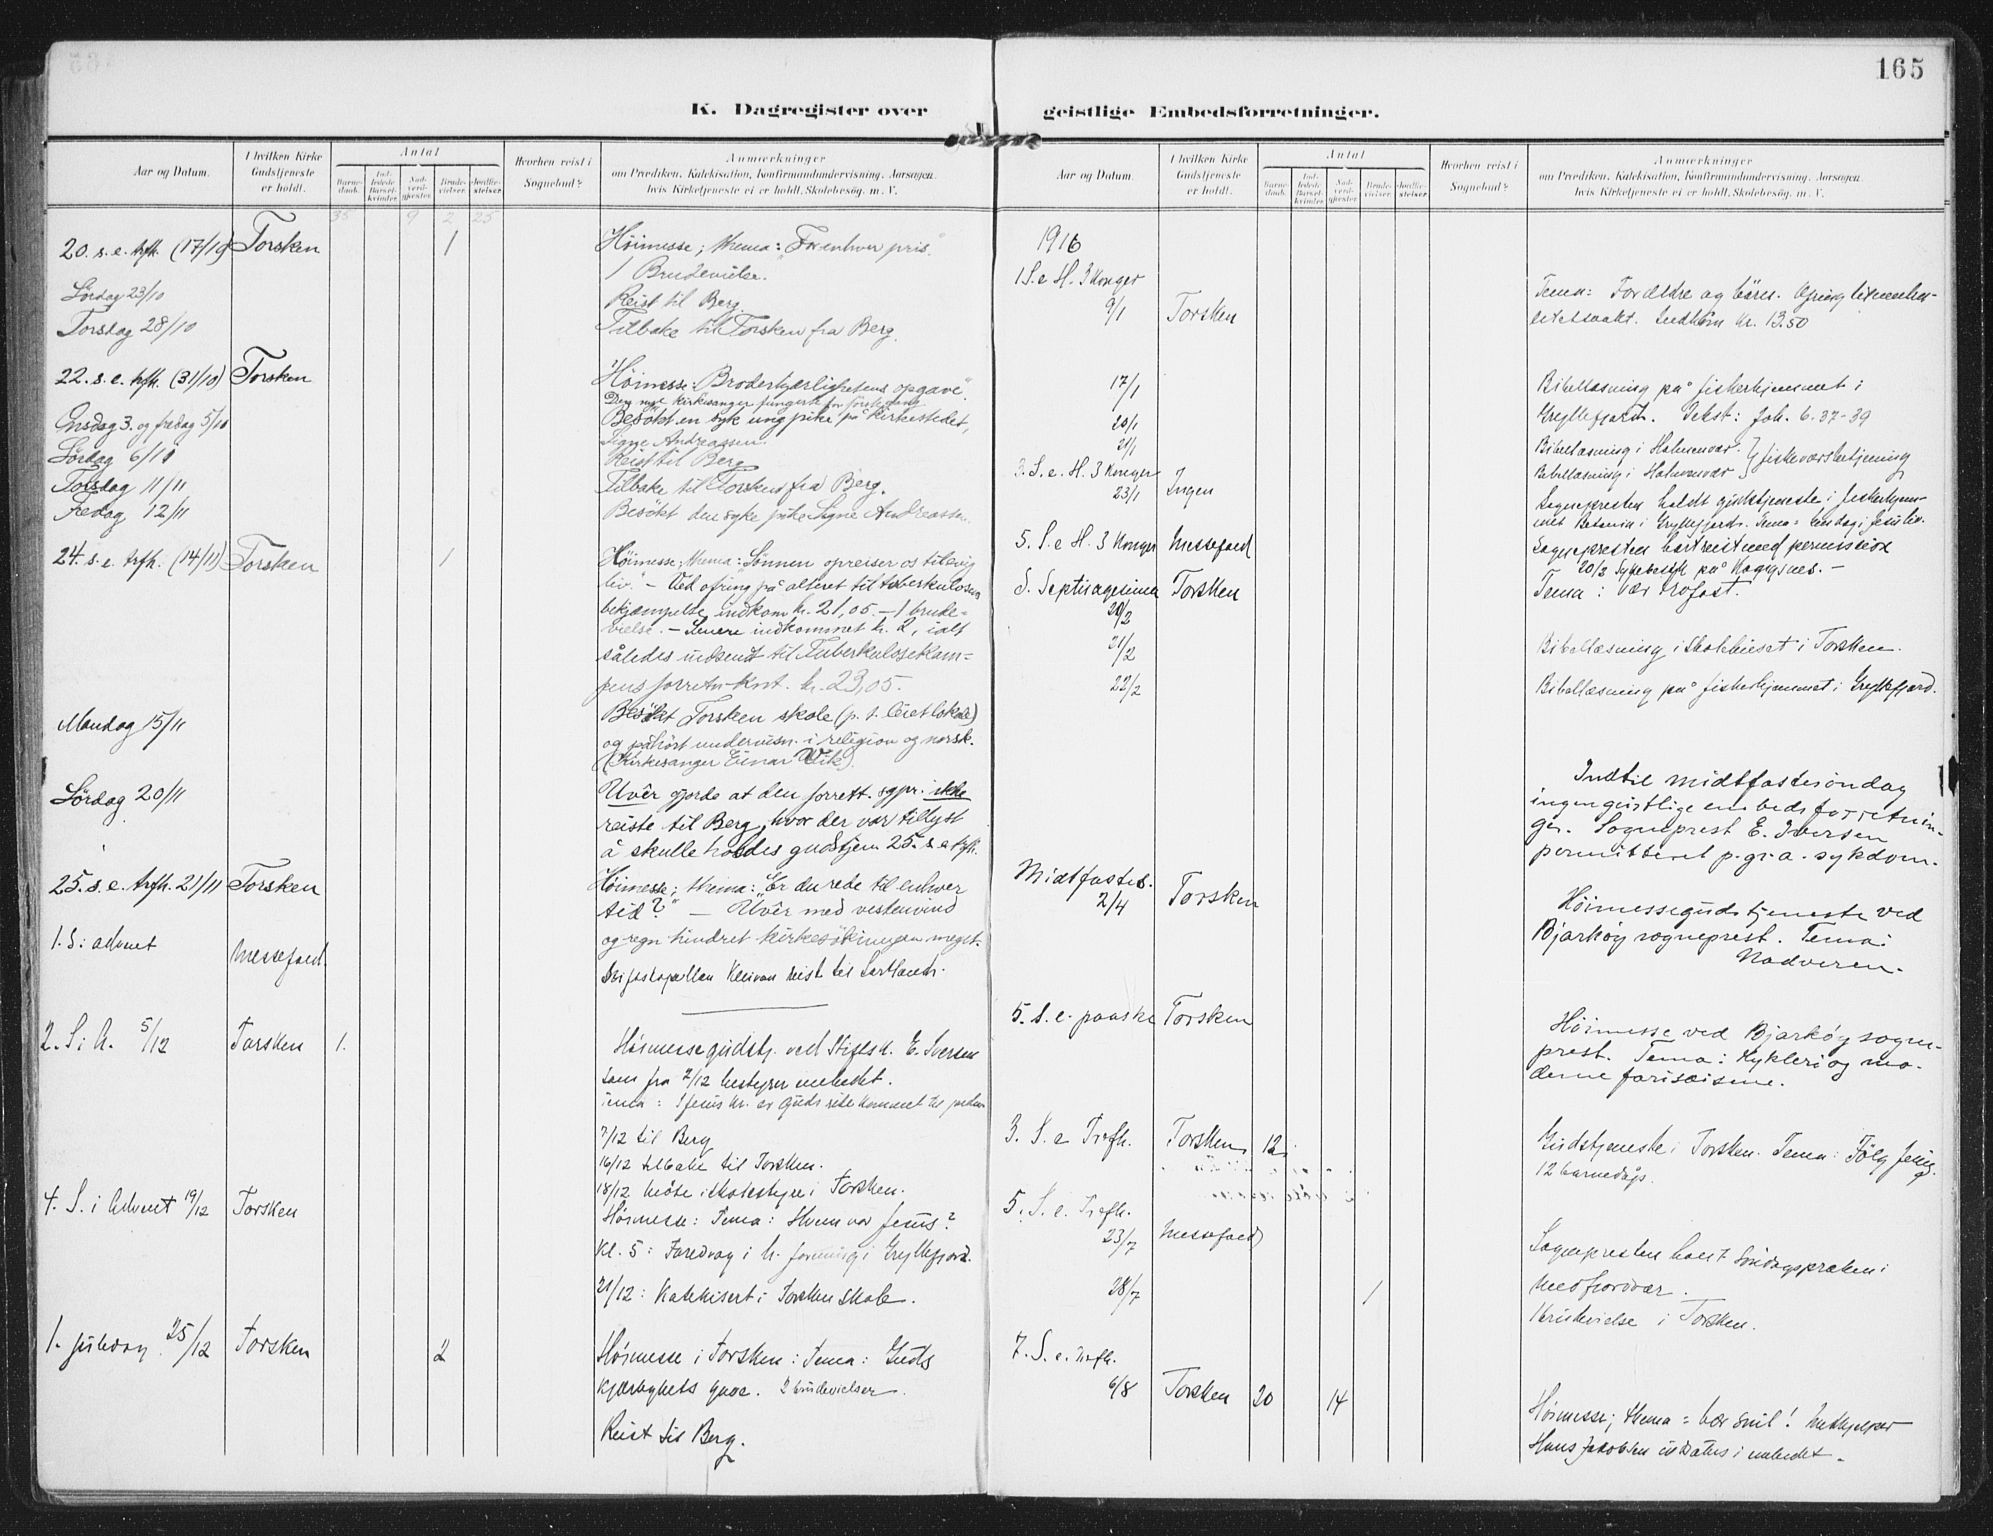 165
K. Dagregister over
geistlige Embedsforretninger.
Aar og Datum.
I hvilken Kirke Gudstjeneste er holdt.
Antal
Barnedaab.
Indledede Barselkvinder.
Nadverdgjester.
Brudevielser.
Jordfæstelser.
Hvorhen reist i Sognebud?
Anmærkninger
om Prædiken, Katekisation, Konfirmandundervisning, Aarsagen,
hvis Kirketjeneste ei er holdt, Skolebesøg, m. V.
35 9 2 25
20. s. e. trfh. (17/10) Torsken 1 Höimesse; thema: "For enhver pris."
1 Brudevielse.
Lördag 23/10 Reist til Berg.
Torsdag 28/10 Tilbake til Torsken fra Berg.
22. s. e. trfh. (31/10) Torsken Höimesse: "Broderkjærlighetens opgave".
Den nye kirkesanger fungerte for förste gang.
Onsdag 3. og fredag 5/11 Besökt en syk ung pike på kirkestedet,
Signe Andreassen.
Lördag 6/11 Reist til Berg
Torsdag 11/11 Tilbake til Torsken fra Berg.
Fredag 12/11 Besökt den syke pike Signe Andreassen
24. s. e. trfh. (14/11) Torsken 1 Höimesse; thema: Sönnen opreiser os til evig
liv." - Ved ofring på alteret til tuberkulosens
bekjæmpelse indkom kr. 21,05. - 1 brude-
vielse. - Senere indkommet kr. 2, ialt
således indsendt til Tuberkulosekam-
pens forretn-knt. kr. 23,05.
Mandag 15/11 Besökt Torsken skole (p. t. leiet lokale)
og påhört undervisn. i religion og norsk.
(Kirkesanger Einar Wik).
Lördag 20/11 Uvêr gjorde at den forrett. sgpr. ikke
reiste til Berg, hvor der var tillyst
å skulle holdes gudstjen 25. s. e. trfh.
25. s. e. trfh. 21/11 Torsken Höimesse; thema: "Er du rede til enhver
tid?" - Uvêr med vestenvind
og regn hindret kirkesökningen meget.
1. S. i advent Messefald. Stiftskapellan Kleivan reist til Sortland.
2. S. i A. 5/12 Torsken 1. Höimesse gudstj. ved Stiftsk. E. Iversen
som fra 2/12 bestyrer embedet.
Tema: I Jesus Kr. er Guds rike kommet til jorden
7/12 til Berg
16/12 tilbake til Torsken.
18/12 möte i skolestyre i Torsken.
4. S. i Advent 19/12 Torsken Höimesse: Tema: Hvem var Jesus?
Kl. 5: Foredrag i k. forening i Gryllefjord.
21/12: Katekisert i Torsken skole.
1. juledag 25/12 Torsken 2 Höimesse i Torsken: Tema: Guds
kjærlighets gave. 2 brudevielser.
Reist til Berg.
Aar og Datum.
I hvilken Kirke Gudstjeneste er holdt.
Antal
Barnedaab.
Indledede Barselkvinder.
Nadverdgjester.
Brudevielser.
Jordfæstelser.
Hvorhen reist i Sognebud?
Anmærkninger
om Prædiken, Katekisation, Konfirmandundervisning, Aarsagen,
hvis Kirketjeneste ei er holdt, Skolebesøg, m. V.
1916
1 S. e H. 3 Konger
9/1 Torsken Tema: Forældre og börn. Ofring
Indkom kr. 13.50
17/1 Bibellæsning på fiskerhjemmet i
Gryllefjord. Tekst: Joh. 6. 37-39
20/1 Bibellæsning i Holmenvær
21/1 Bibellæsning i Holmenvær } fiskeværsbetjening
3. S. e. H. 3 Konger
23/1 Ingen Sognepresten holdt gudstjeneste i fiskerhjem-
met Betania i Gryllefjord. Tema: en dag i Jesu liv.
5. S. e H. 3 Konger Messefald Sognepresten bortreist med permission
20/2
S. Septuagesima Torsken Tema: Vær trofast.
20/2
21/2 Bibellæsning i skolehuset i Torsken.
22/2 Bibellæsning på fiskerhjemmet i Gryllefjord.
Indtil midtfastesöndag
ingen geistlige embedsforretnin-
ger. Sogneprest E. Iversen
permitteret p. gr. a. sykdom.
Midtfastes.
2/4 Torsken Höimessegudstjeneste ved
Bjarköy sogneprest. Tema:
Nadveren.
5. S. e. paaske Torsken Höimesse ved Bjarköy sogne-
prest. Tema: Hykleri og mo-
derne farisæisme.
3. S. e Trefh. Torsken 12 Gudstjeneste i Torsken. Tema: Fölg Jesus
12 barnedåp.
5. S. e. Trefh.
23/7 Messefald Sognepresten holdt söndagspræken i
Medfjordvær.
28/7 1 1 brudevielse i Torsken.
7. S. e. Trefh.
6/8 Torsken 20 14 Höimesse; thema: Vær snil! Medhjelper
Hans Jakobsen indsattes i embedet.